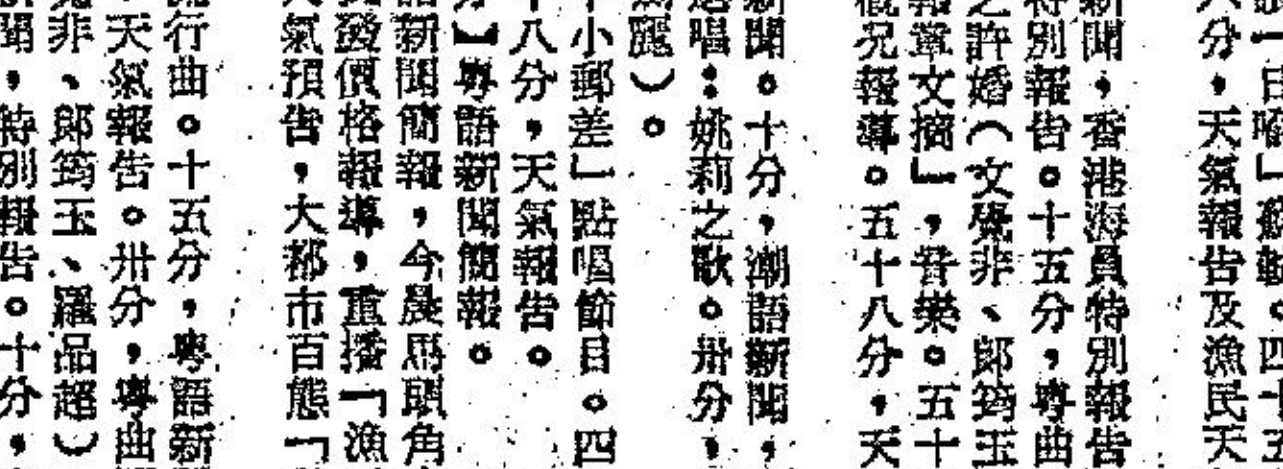 一日唱」蘇翁。四十五
八分，天氣報告及漁民天
新聞，香港海員特別報告
特別報告。十五分，粵曲
之許婚（文覺非、郎筠玉
報章文摘」，音樂。五十
概况報導。五十八分，天
新聞。十分，潮語新聞，
選唱：姚莉之歌。卅分，
麗）。
小郵差」點唱節目。四
十八分，天氣報告。
分】粵語新聞簡報。
語新聞簡報，今晨馬頭角
批發價格報導，重播「漁
天氣預告，大都市百態「
流行曲。十五分，粵語新
，天氣報告。卅分，粵曲
覺非、郎筠玉、羅品超）
新聞，特別報告。十分，